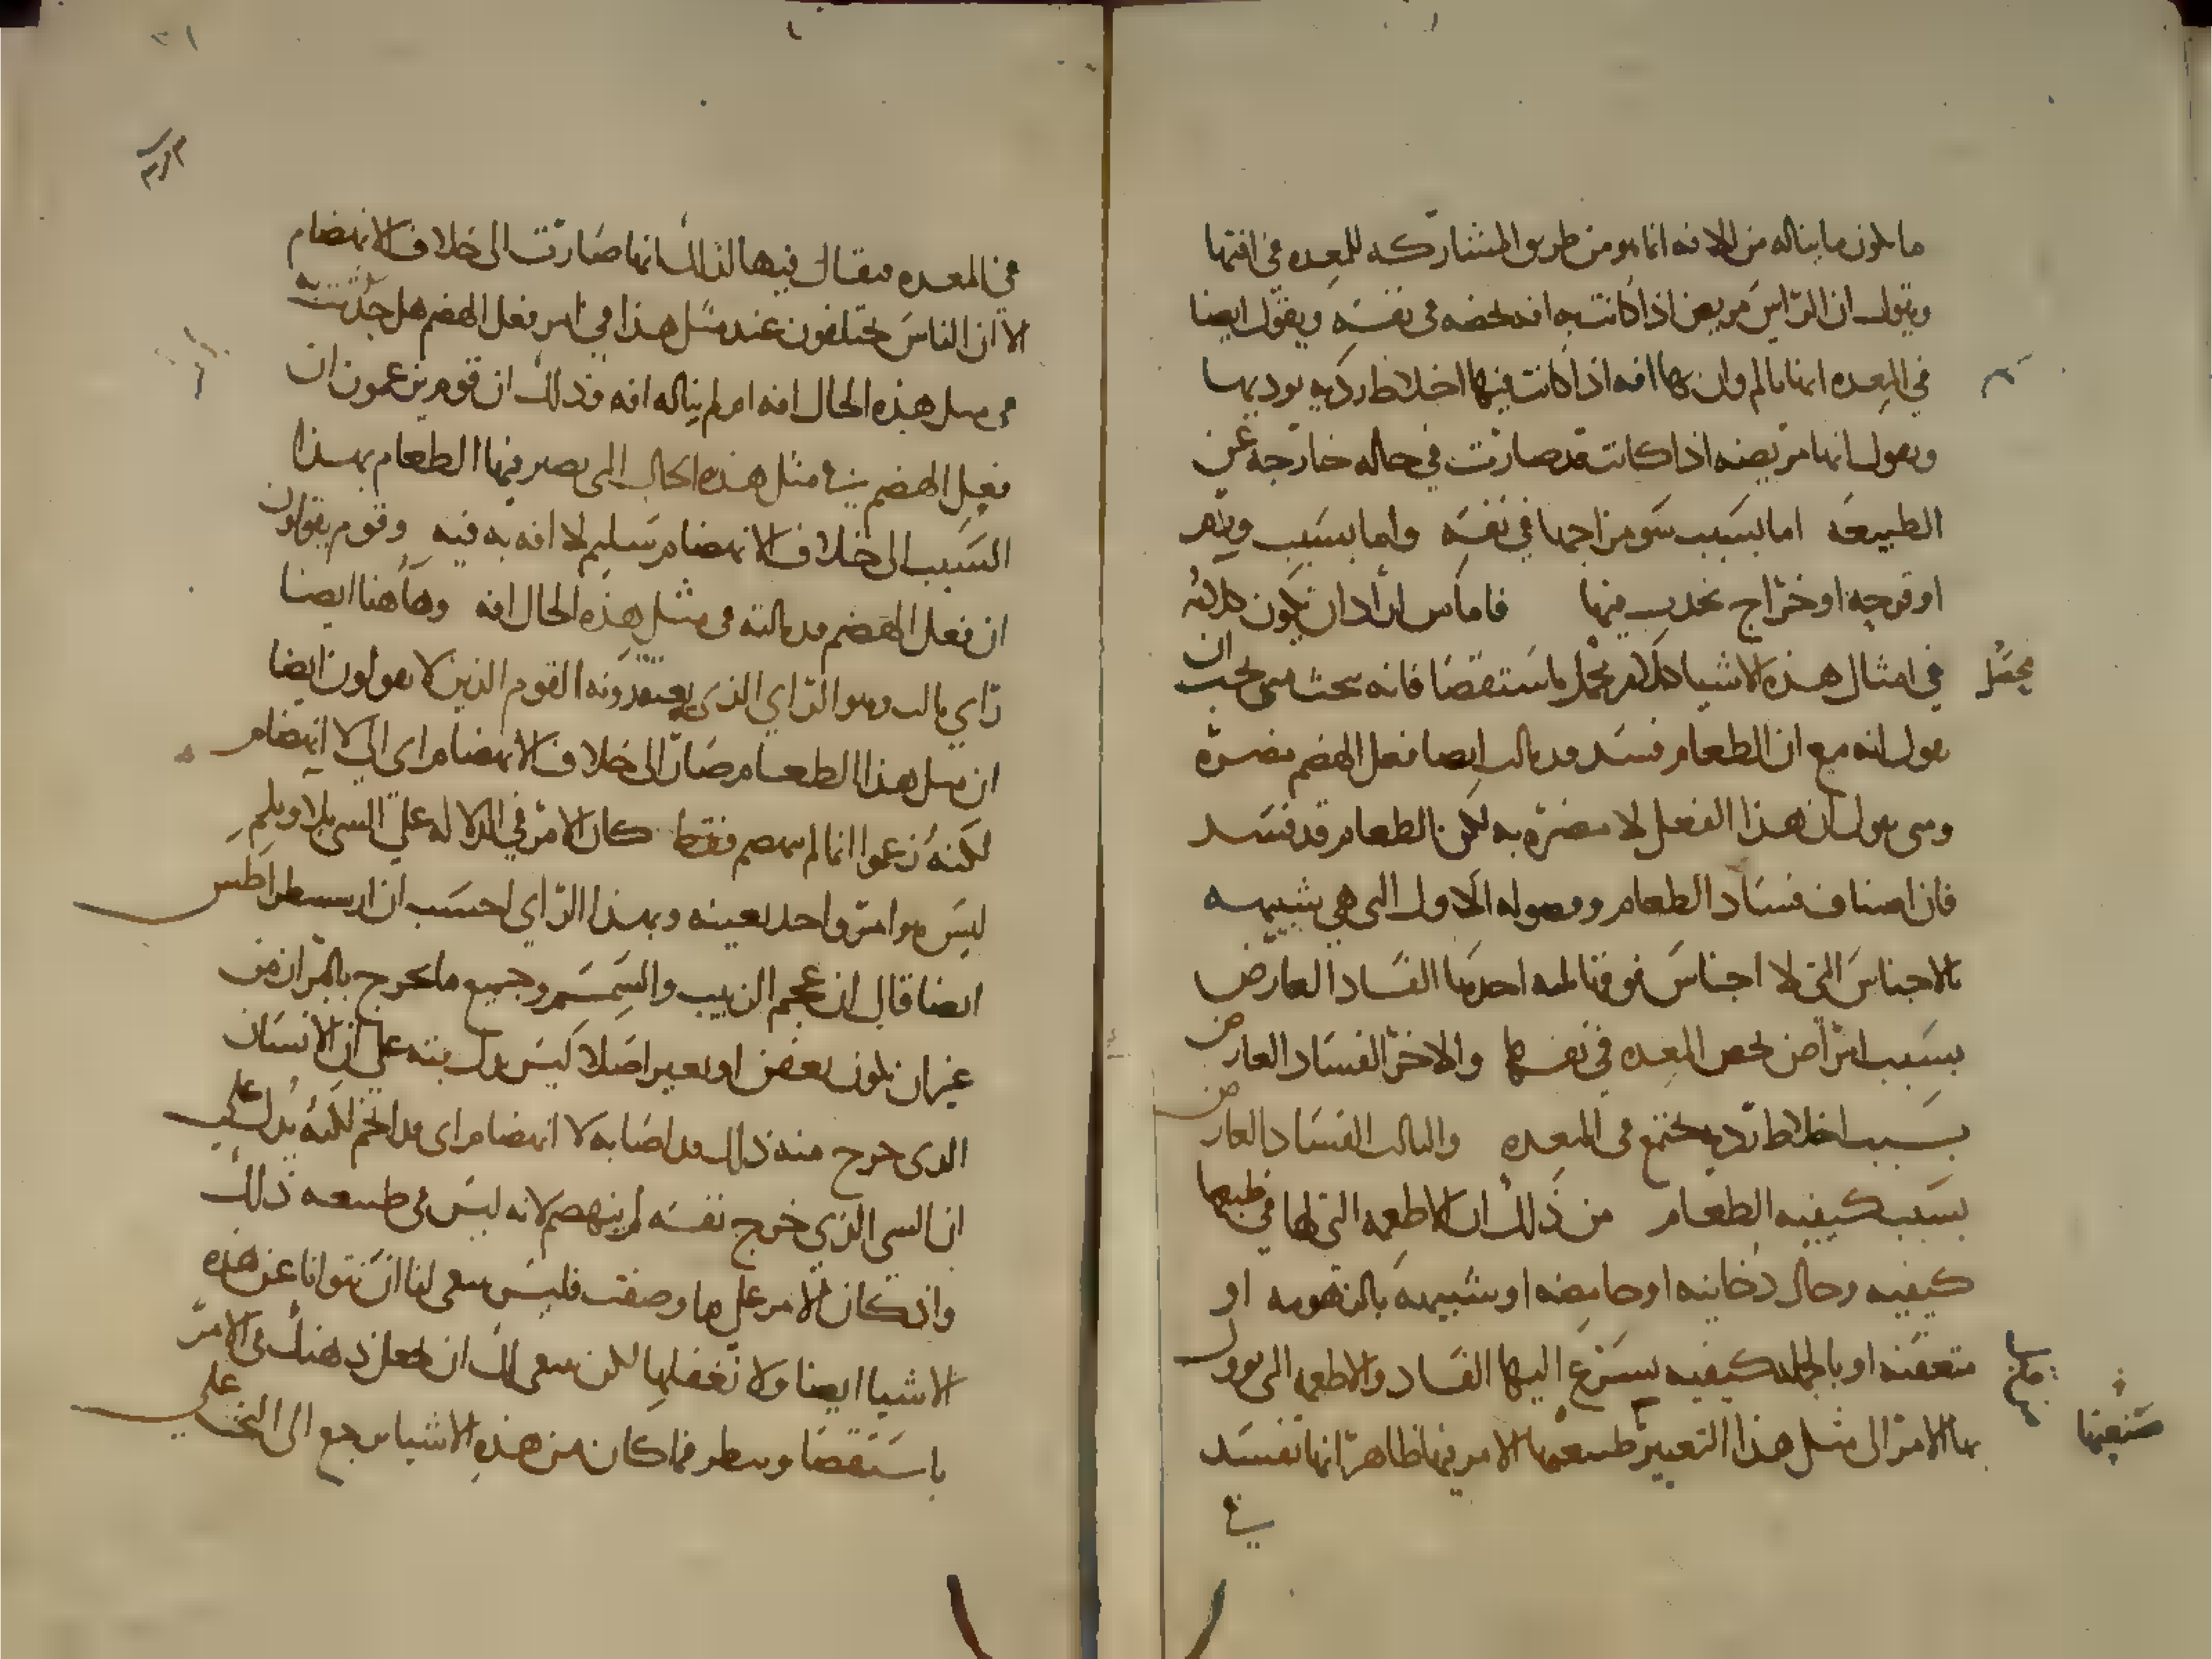 ما يكون ما يناله من الافه انما هو من طريق المشاركه للمعده في افتها
ويقول ان الراس مريض اذا كانت به افه تخصه في نفسه ويقول ايضا
في المعده انها تالم وان بها افه اذا كانت فيها اخلاط رديه توديها
ويقول انها مريضه اذا كانت قد صارت في حاله خارجه عن
الطبيعه اما بسبب سو مزاجها في نفسه واما بسبب ورم
او قرحه او خراج يحدث فيها فاما من اراد ان يكون كلامه
في امثال هذه الاشيا كلام باستقصا فانه يبحث متى يجب ان
محصل
يقول انه مع ان الطعام فسد قد نالت ايضا فعل الهضم مضره
ومتى يقول ان هذا الفعل لا مضره به لكن الطعام قد فسد
فان اصناف فساد الطعام وفصوله الاول التى هي شبيهه
بالاجناس التي لا اجناس فوقها ثلثه احدها الفساد العارض
بسبب امراض تخص المعده في نفسها والاخر الفساد العارض
بسبب اخلاط رديه تجتمع في المعده والثالث الفساد العارض
بسبب كيفيه الطعام من ذلك ان الاطعمه التي لها في طبعها
كيفيه وحال دخانيه او حامضه او شبيهه بالزهومه او
متعفنه او بالجمله كيفيه يسرع اليها الفساد والاطعمه التى يوول
بها الامر الى مثل هذا التغيير طبيعتها الامر فيها ظاهر انها تفسد
صنعتها
في
في المعده فيقال فيها لذلك انها صارت الى خلاف الانهضام
الا ان الناس يختلفون عند مثل هذا في امر فعل الهضم هل حدثت به
في مثل هذه الحال افه ام لم يناله افه وذلك ان قوم يزعمون ان
فعل الهضم في مثل هذه الحال التى يصير فيها الطعام بهذا
السبب الى خلاف الانهضام سليم لا افه به فيه وقوم يقولون
ان فعل الهضم قد نالته في مثل هذه الحال افه وهاهنا ايضا
راي ثالث وهو الراي الذي يعتقدونه القوم الذين لا يقولون ايضا
ان مثل هذا الطعام صار الى خلاف الانهضام اى الى لا انهضام
لكنه زعموا انما لم ينهضم فقط كان الامر في الدلاله على الشى بلا وبلم
ليس هو امر واحد بعينه وبهذا الراي احسب ان ارسسطراطس
ايضا قال ان عجم الزبيب والسمسم وجميع ما يخرج بالبراز من
غير ان يكون تعفن او تغير اصلا ليس يدل بته على ان الانسان
الذى خرج منه ذلك قد اصابه لا انهضام اى قد اتخم لكنه يدل على
ان الشى الذي خرج نفسه لم ينهضم لانه ليس في طبيعه ذلك
وان كان الامر على ما وصفت فليس ينبغى لنا ان نتوانا عن هذه
الاشيا ايضا ولا نغفلها لكن ينبغى لك ان تجعل ذهنك في الامر
باستقصا وتنظر فما كان من هذه الاشيا يرجع الى البحث على